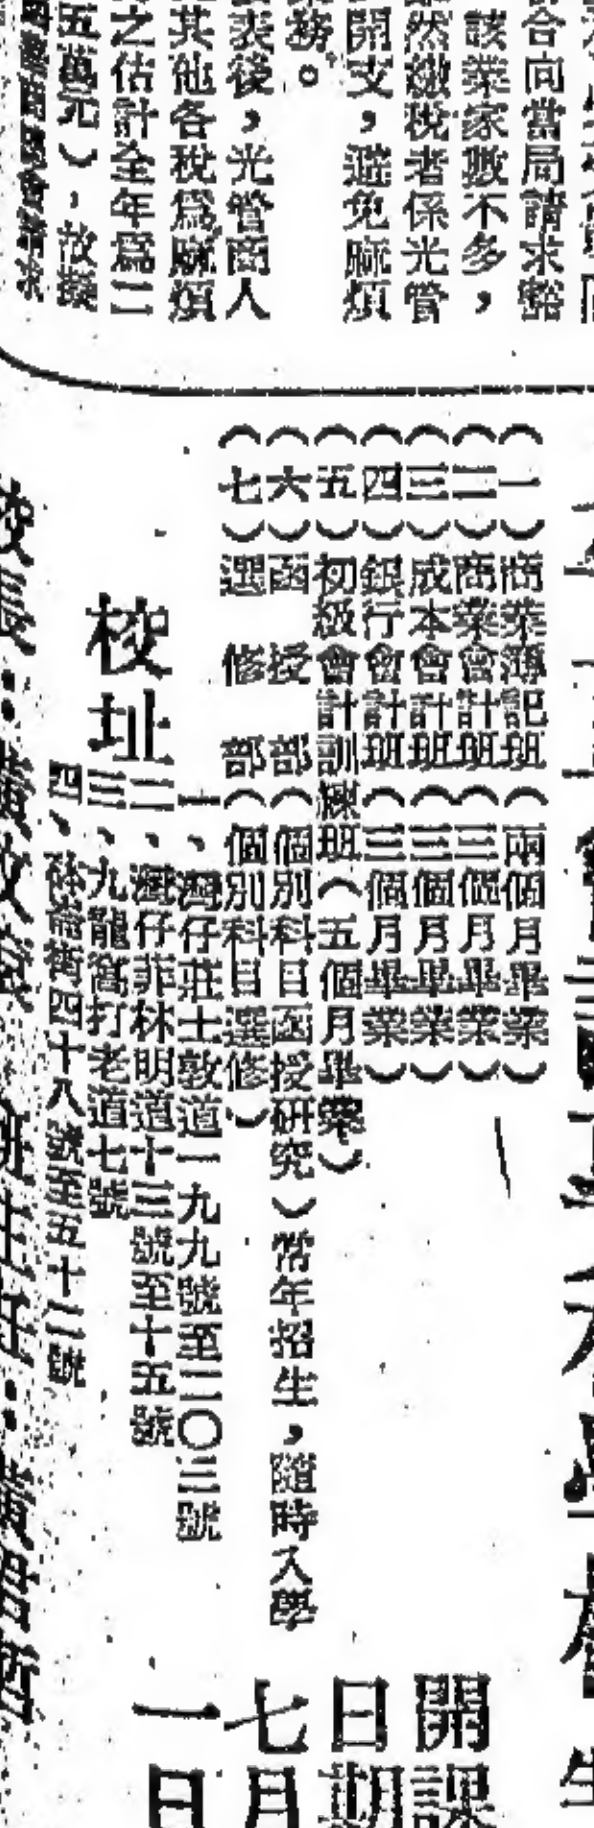 合向當局請求豁
該業家數不多，
然繳稅者係光管
開支，避免麻煩
務。
表後，光管商人
其他各稅為麻煩
之估計全年為二
五萬元），故擬
（一）商業簿記班（兩個月畢業）
（二）商業會計班（三個月畢業）
（三）成本會計班（三個月畢業）
（四）銀行會計班（三個月畢業）
（五）初級會計訓練班（五個月畢業）
（六）函授部（個別科目函授研究）常年招生，隨時入學
（七）選修部（個別科目選修）
校址
一、灣仔莊士敦道一九九號至二〇三號
二、灣仔菲林明道十三號至十五號
三、九龍窩打老道七號
四、砵崙街四十八號至五十二號
開課
日期
七月
一日
校長：黃
班主任：黃君